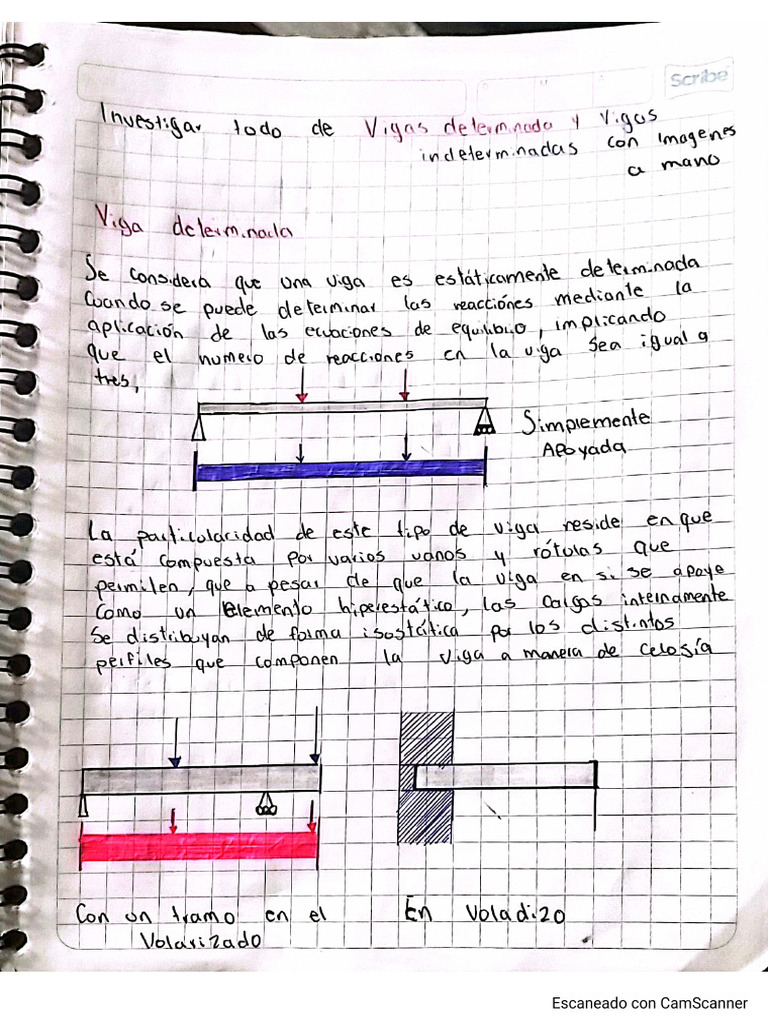 Scribe
Investigar todo de Vigas determinada y Vigas
indeterminadas con imagenes
a mano
Viga determinada
Se considera que una viga es estáticamente determinada
Cuando se puede determinar las reacciónes mediante la
aplicación de las ecuaciones de equilibrio, implicando
que el numero de reacciones en la viga sea igual a
tres,
Simplemente
Apoyada
La particularidad de este tipo de viga reside en que
está compuesta por varios vanos y rótulas que
permiten, que a pesar de que la viga en si se apoye
Como un Elemento hiperestático, las cargas internamente
Se distribuyan de forma isostática por los distintos
perfiles que componen la viga a manera de celosía
Con un tramo en el
Volarizado
En Voladizo
Escaneado con CamScanner